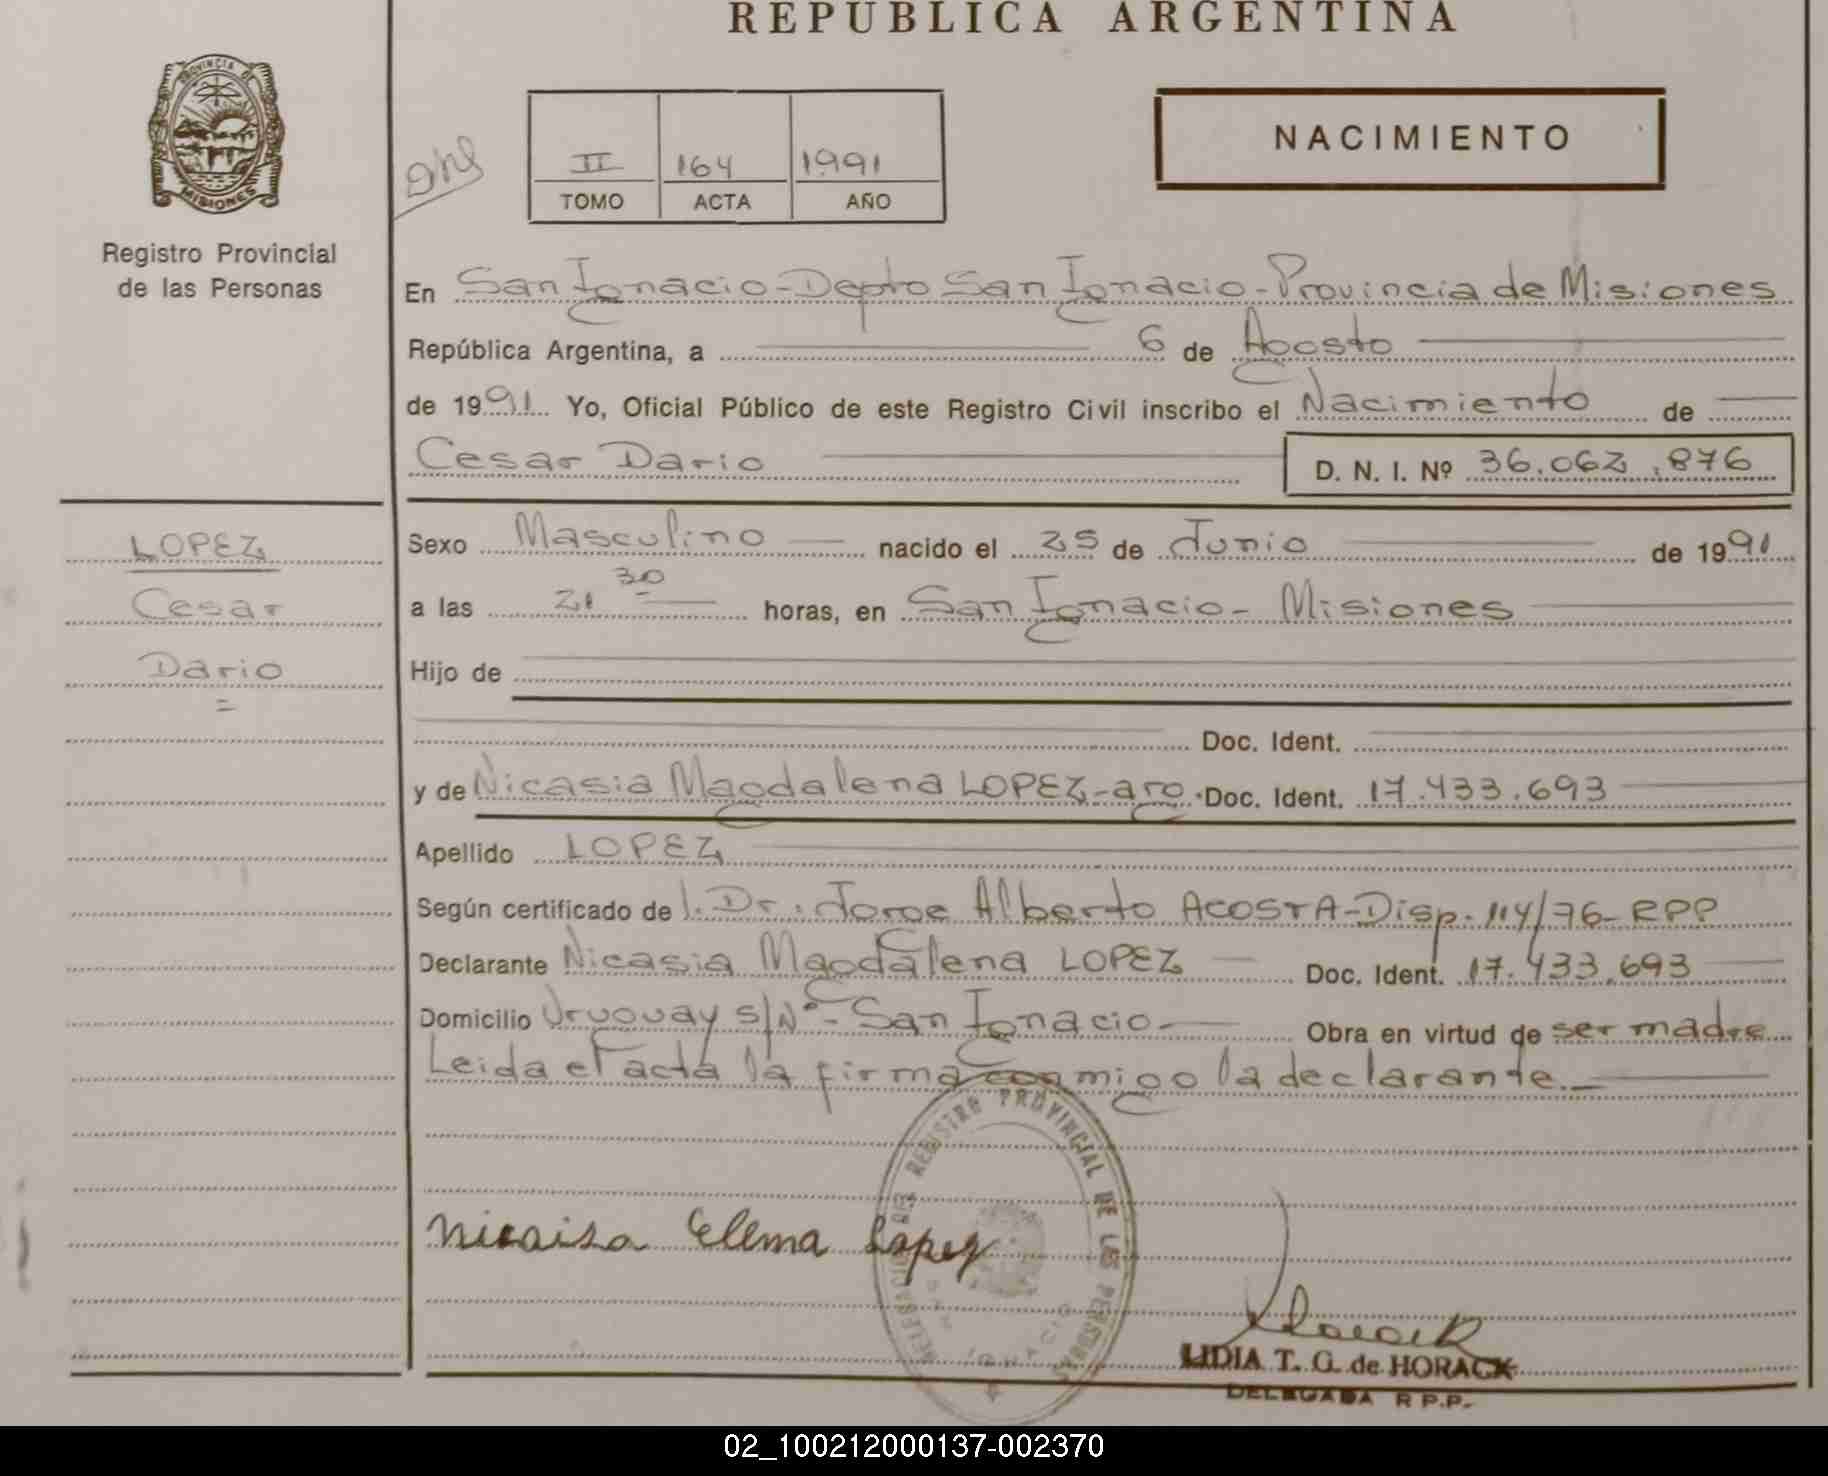 REPUBLICA ARGENTINA
PROVINCIA DE
MISIONES
Registro Provincial
de las Personas
II 164 1991
TOMO ACTA AÑO
NACIMIENTO
En San Ignacio - Depto San Ignacio - Provincia de Misiones
República Argentina, a 6 de Agosto
de 1991 Yo, Oficial Público de este Registro Civil inscribo el Nacimiento de
Cesar Dario D. N. I. Nº 36.062.876
LOPEZ
Cesar
Dario
=
Sexo Masculino nacido el 25 de Junio de 1991
a las 21 30 horas, en San Ignacio - Misiones
Hijo de
Doc. Ident.
y de Nicasia Magdalena LOPEZ - arg. Doc. Ident. 17.433.693
Apellido LOPEZ
Según certificado de l. Dr. Jorge Alberto ACOSTA - Disp. 114/76 - RPP
Declarante Nicasia Magdalena LOPEZ Doc. Ident. 17.433.693
Domicilio Uruguay s/Nº - San Ignacio Obra en virtud de ser madre
Leida el acta la firma conmigo la declarante.
DELEGACION DEL REGISTRO PROVINCIAL DE LAS PERSONAS
SAN IGNACIO
Nicaisa Elema Lopez
Horack
LIDIA T. G. de HORACK
DELEGADA R P.P.
02_100212000137-002370